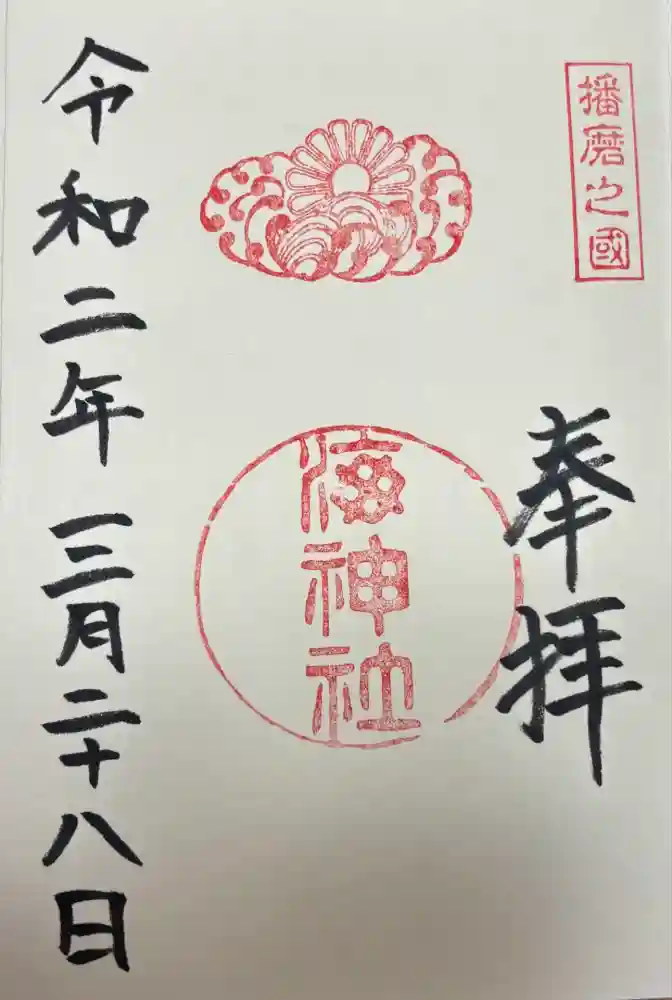 播磨之國
奉拝
海神社
令和二年 三月二十八日